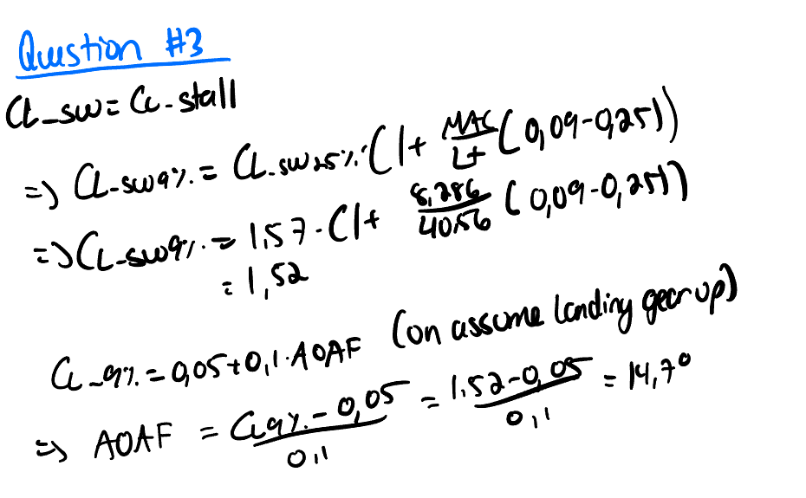 Question #3
CL-sw = CL-stall
=> CL-sw9% = CL-sw25% · (1 + MAC/Lt (0,09-0,25))
=> CL-sw9% = 1,57 · (1 + 8,286/40,56 (0,09-0,25))
= 1,52
CL-9% = 0,05 + 0,1 · AOAF (on assume landing gear up)
=> AOAF = CL9% - 0,05/0,1 = 1,52-0,05/0,1 = 14,7°